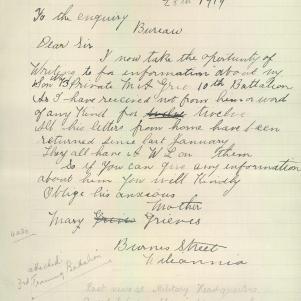 28th 1919
To the enquiry
Bureau
Dear Sir
I now take the oportunity of
Writing to for information about my
Son Private 10th Battalion
As I have received not from him or word
of any Kind for twelve
All this letters from home have been
returned since last January
They all have A W L on them
So if you can give any information
about him you will Kindly
Oblige his anxious
Mother
Mary Grieves Grieves
Burns Street
Wilcannia
attached
3rd Training Battalion
Military Headquarters